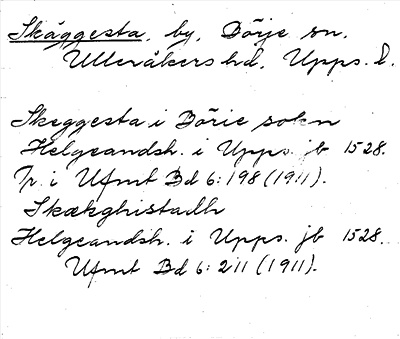 Skäggesta, by, Börje sn,
Ulleråkers hd, Upps. l.
Skeggesta i Börie sokn
Helgeandsh. i Upps. jb 1528.
Tr. i Ufmt Bd 6:198 (1911).
Skækghistadh
Helgeandsh. i Upps. jb 1528.
Ufmt Bd 6:211 (1911).